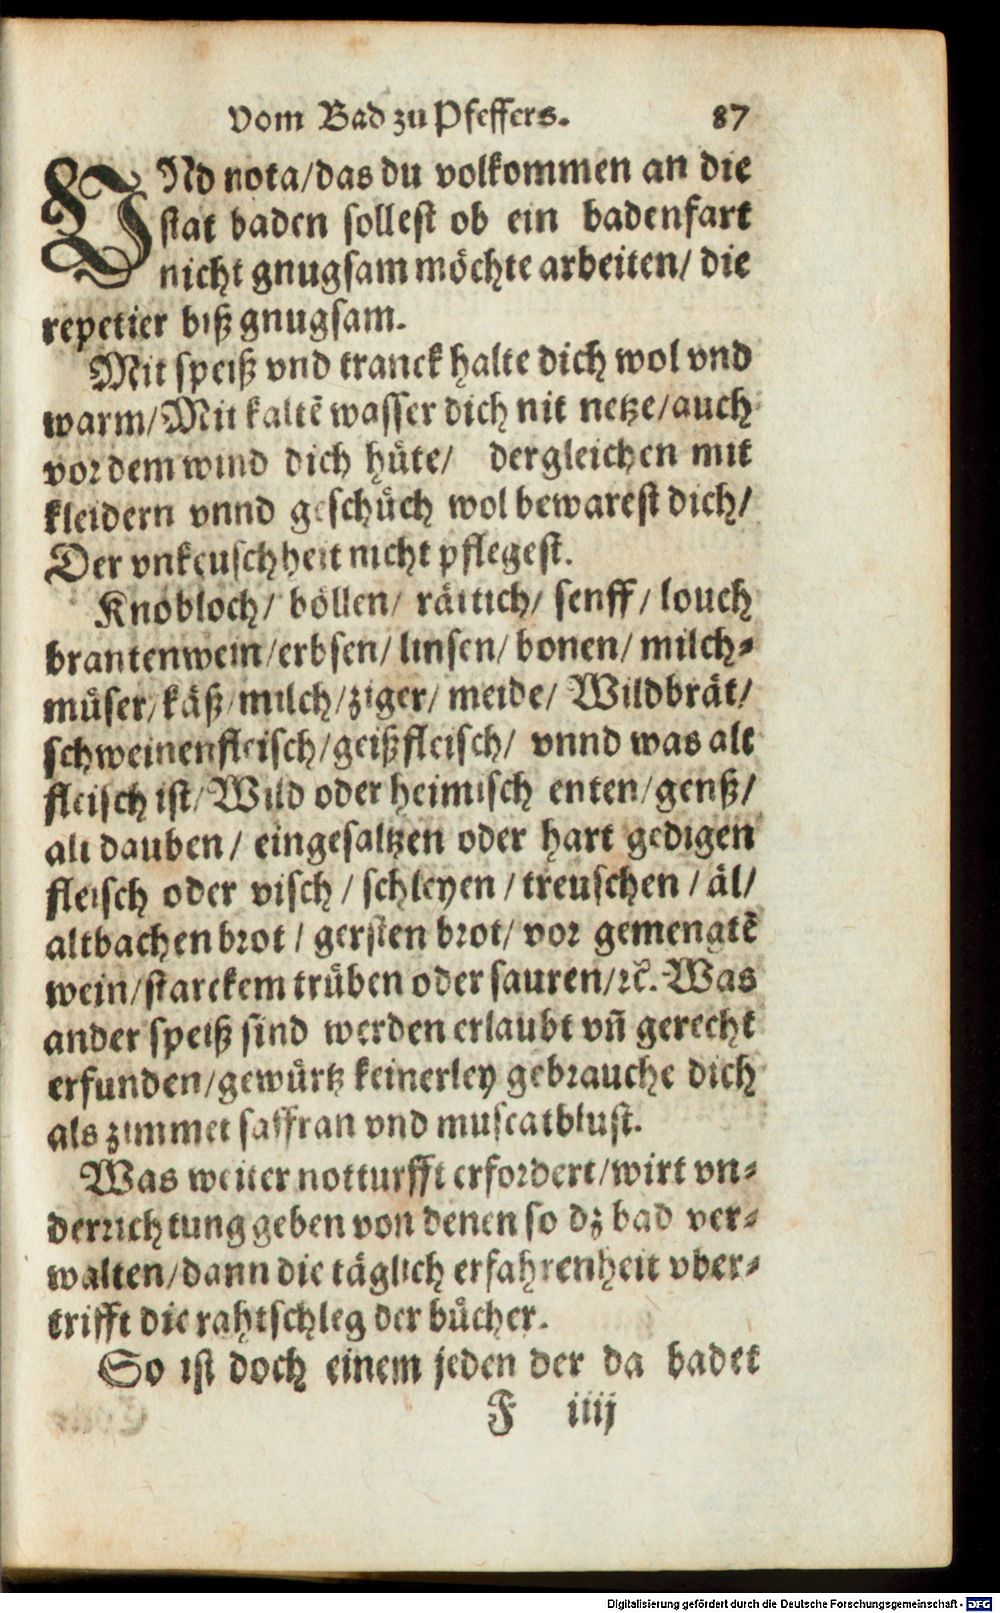 Vom Bad zu Pfeffers. 87
VNd nota/das du volkommen an die
stat baden sollest ob ein badenfart
nicht gnugsam möchte arbeiten/ die
repetier biß gnugsam.
Mit speiß vnd tranck halte dich wol vnd
warm/Mit kaltē wasser dich nit netze/auch
vor dem wind dich hüte/ dergleichen mit
kleidern vnnd geschüch wol bewarest dich/
Der vnkeuschheit nicht pflegest.
Knobloch/ böllen/ rättich/ senff/ louch
brantenwein/erbsen/ linsen/ bonen/ milch-
müser/käß/milch/ziger/ meide/ Wildbrät/
schweinenfleisch/geißfleisch/ vnnd was alt
fleisch ist/Wild oder heimisch enten/genß/
alt dauben/ eingesaltzen oder hart gedigen
fleisch oder visch/ schleyen/treuschen/äl/
altbachen brot/ gersten brot/ vor gemengtē
wein/starckem trüben oder sauren/ꝛc̄. Was
ander speiß sind werden erlaubt vn̄ gerecht
erfunden/gewürtz keinerley gebrauche dich
als zimmet saffran vnd muscatblust.
Was weiter notturfft erfordert/wirt vn-
derrichtung geben von denen so dz bad ver-
walten/dann die täglich erfahrenheit vber-
trifft die rahtschleg der bücher.
So ist doch einem jeden der da badet
F iiij
Digitalisierung gefördert durch die Deutsche Forschungsgemeinschaft - DFG